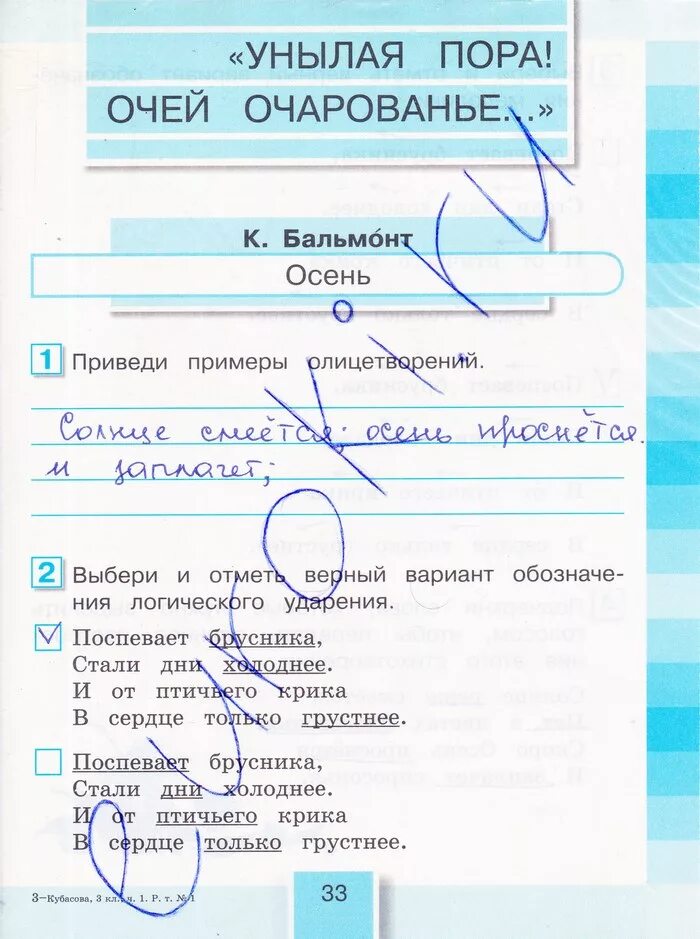 «УНЫЛАЯ ПОРА!
ОЧЕЙ ОЧАРОВАНЬЕ...»
К. Бальмо́нт
Осень
1 Приведи примеры олицетворений.
Солнце смеётся; осень проснётся
и заплачет;
2 Выбери и отметь верный вариант обозначе-
ния логического ударения.
Поспевает брусника,
Стали дни холоднее.
И от птичьего крика
В сердце только грустнее.
Поспевает брусника,
Стали дни холоднее.
И от птичьего крика
В сердце только грустнее.
3—Кубасова, 3 кл., ч. 1. Р. т. № 1
33